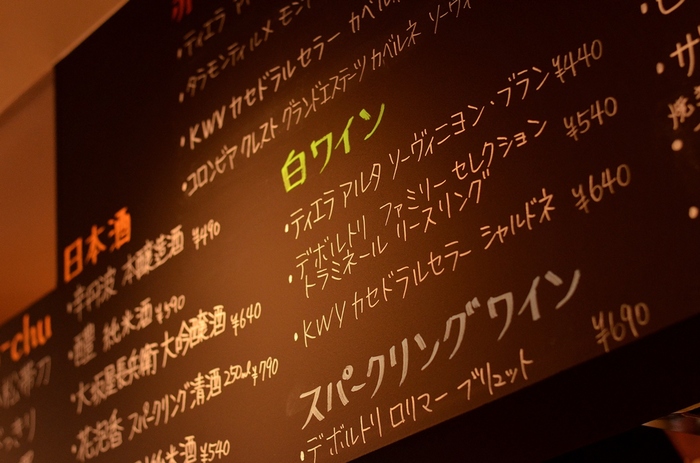 ・ティエラ
・タラモンティ ルメ モン
・KWV カセドラルセラー カベル
・コロンビア クレスト グランドエステーツ カベルネ ソーヴィ
白ワイン
・ティエラ アルタ ソーヴィニヨン・ブラン ¥440
・デボルトリ ファミリー セレクション
トラミネール リースリング ¥540
・KWV カセドラルセラー シャルドネ ¥640
スパークリングワイン
・デボルトリ ロリマー ブリュット ¥690
日本酒
本醸造酒 ¥490
純米酒 ¥590
・大坂屋長兵衛 大吟醸酒 ¥640
・花泡香 スパークリング清酒 250ml ¥790
純米酒 ¥540
chu